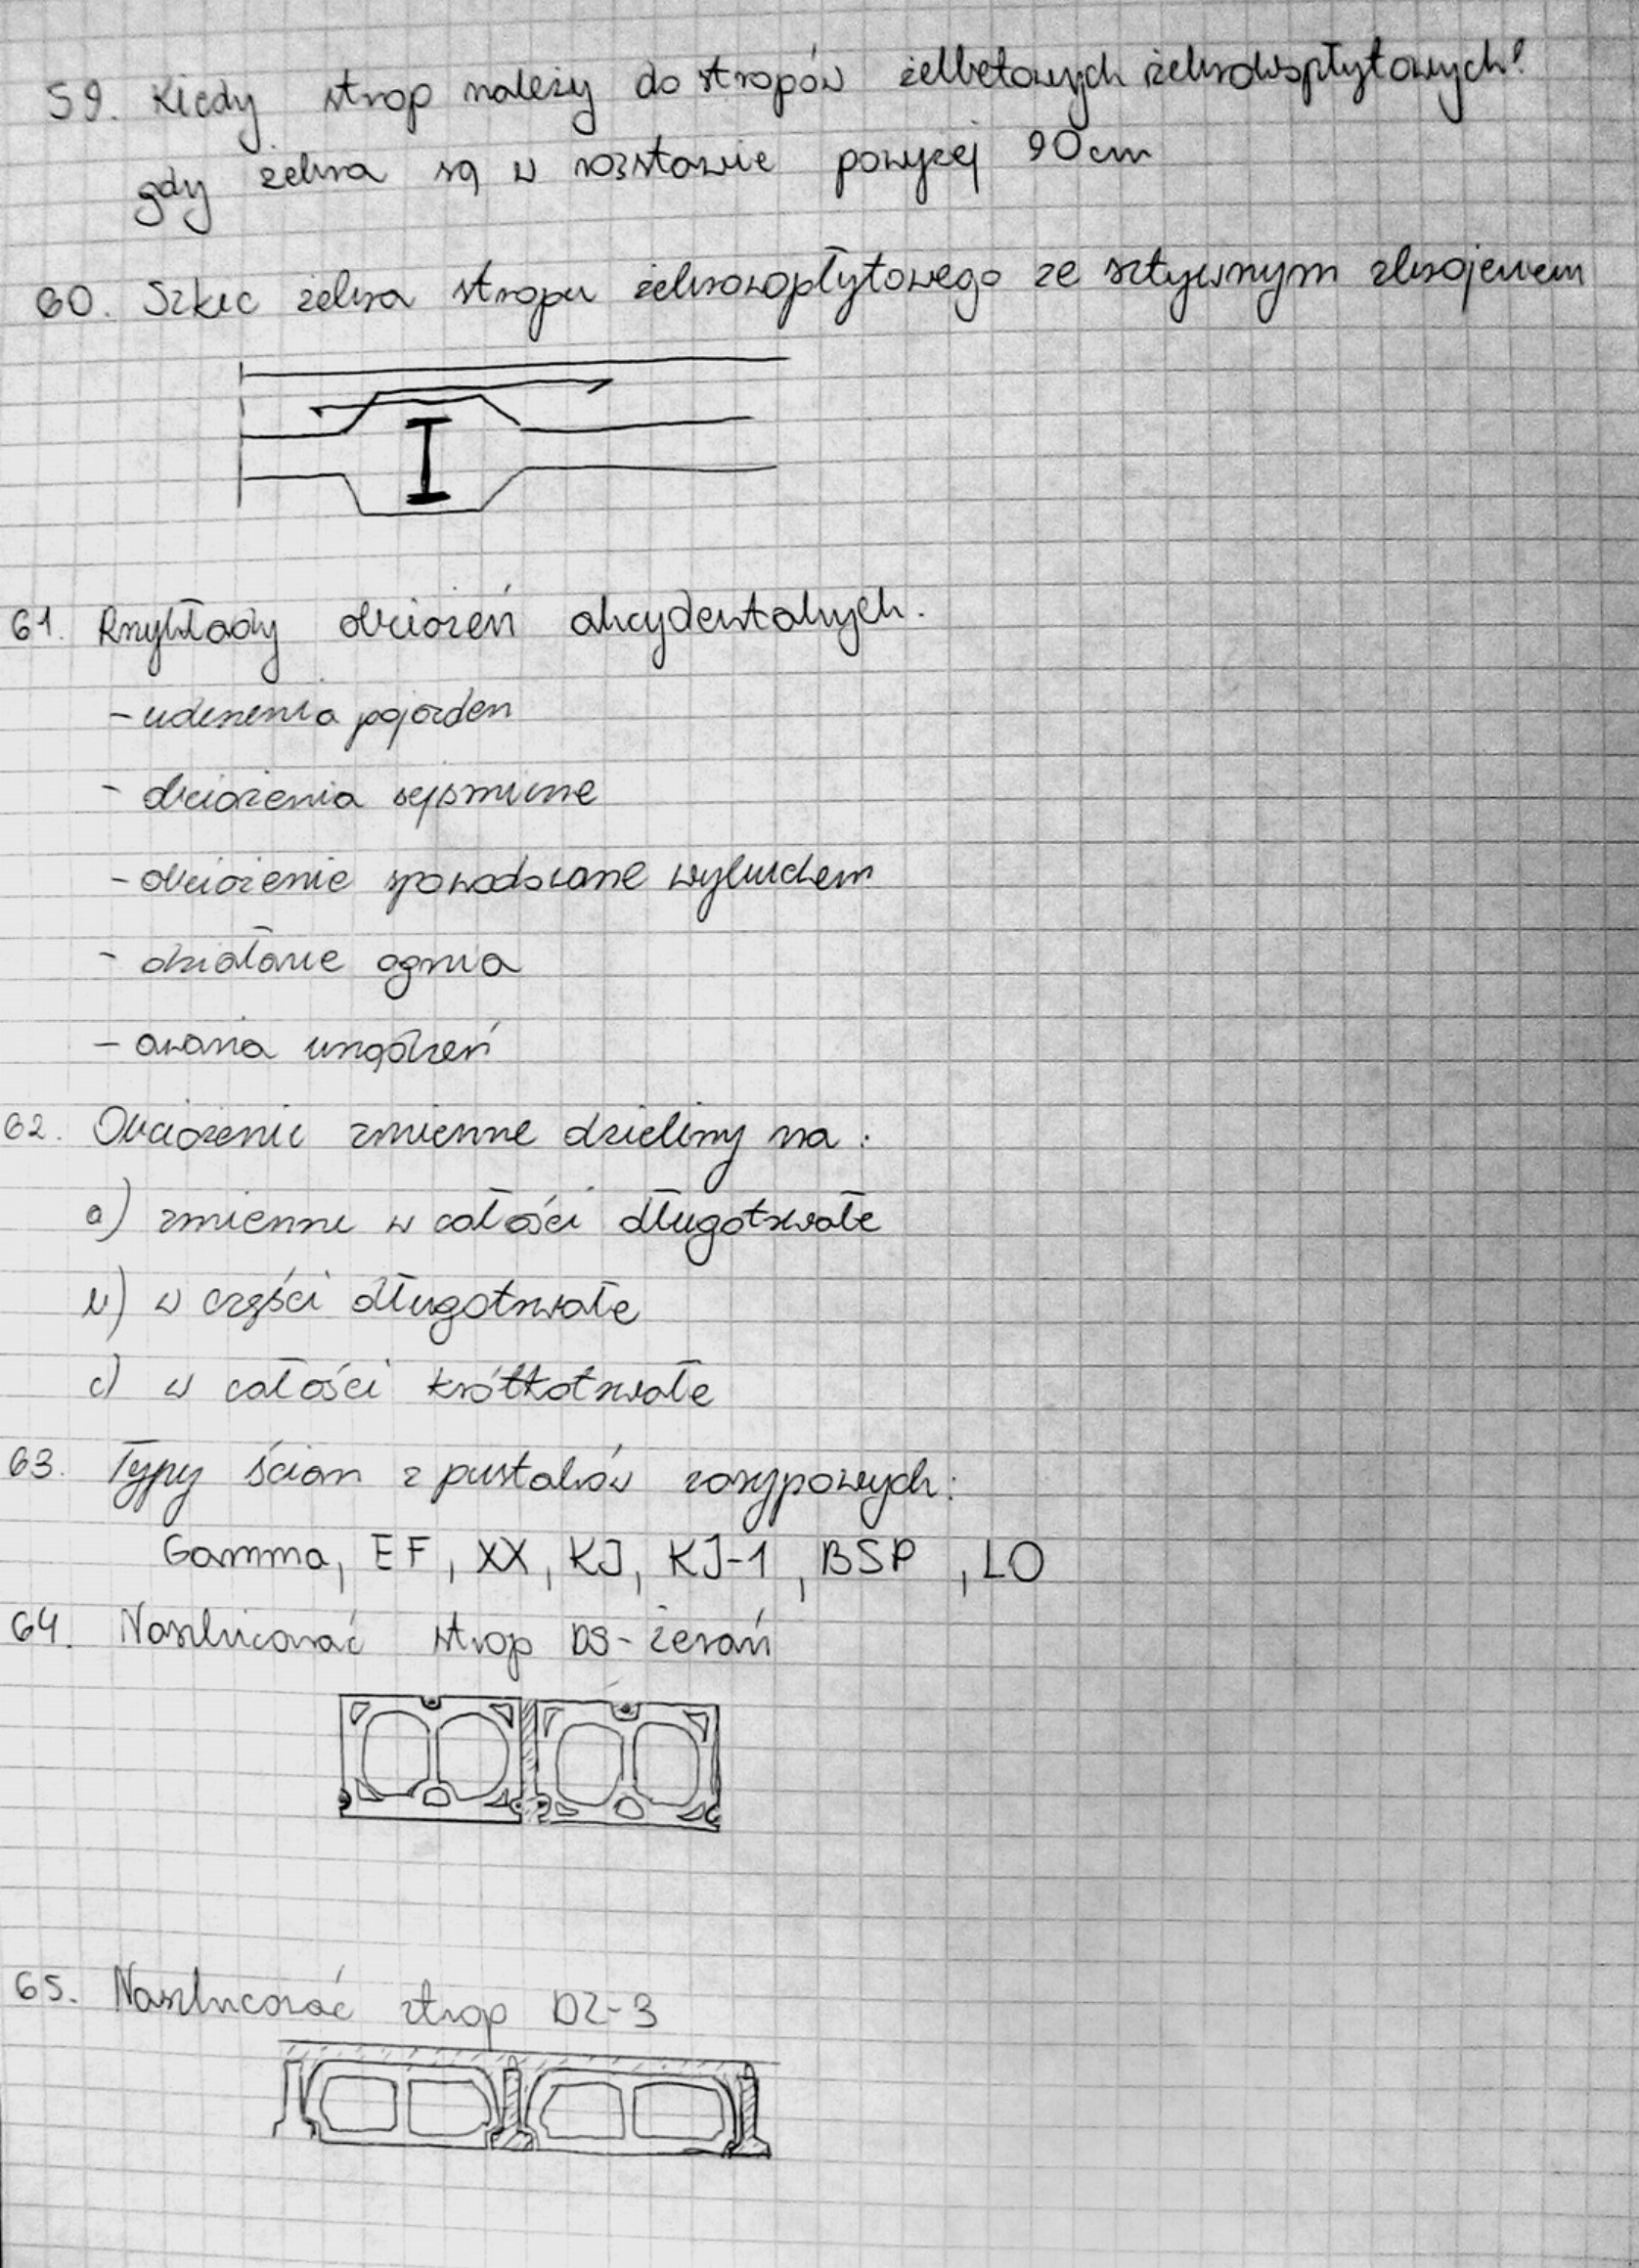 59. Kiedy strop należy do stropów żelbetowych żebrowopłytowych?
gdy żebra są w rozstawie powyżej 90cm
60. Szkic żebra stropu żebrowopłytowego ze sztywnym zbrojeniem
61. Przykłady obciążeń akcydentalnych.
- uderzenia pojazdem
- obciążenia sejsmiczne
- obciążenie spowodowane wybuchem
- działanie ognia
- awaria urządzeń
62. Obciążenie zmienne dzielimy na:
a) zmienne w całości długotrwałe
b) w części długotrwałe
c) w całości krótkotrwałe
63. Typy ścian z pustaków zasypowych:
Gamma, EF, XX, KJ, KJ-1, BSP, LO
64. Naszkicować strop DS-żerań
65. Naszkicować strop DZ-3